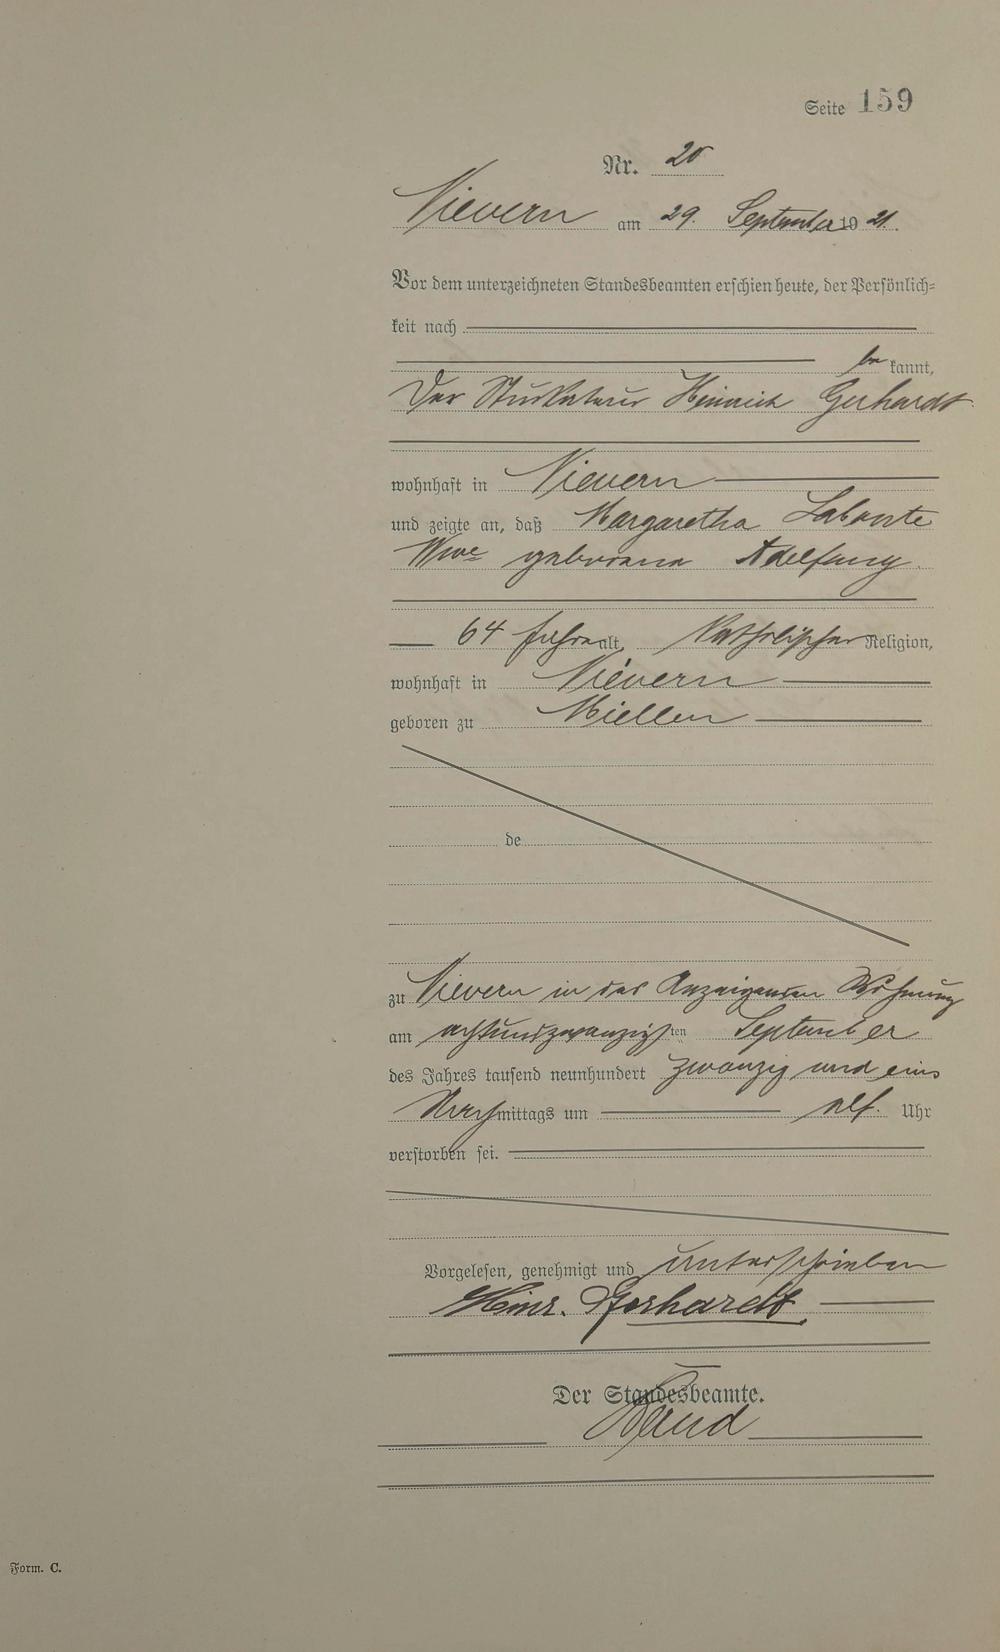 Seite 159
Nr. 20
Nievern am 29. September 1921.
Vor dem unterzeichneten Standesbeamten erschien heute, der Persönlich=
keit nach
be kannt,
Der Stukkateur Heinrich Gerhardt
wohnhaft in Nievern
und zeigte an, daß Margaretha Labonte
Wwe geborene Adelfang
64 Jahre alt, Katholischer Religion,
wohnhaft in Nievern
geboren zu Miellen
de
zu Nievern in des Anzeigenden Wohnung
am achtundzwanzigsten September
des Jahres tausend neunhundert zwanzig und eins
Nachmittags um elf Uhr
verstorben sei.
Vorgelesen, genehmigt und unterschrieben
Heinr. Gerhardt
Der Standesbeamte.
Form. C.